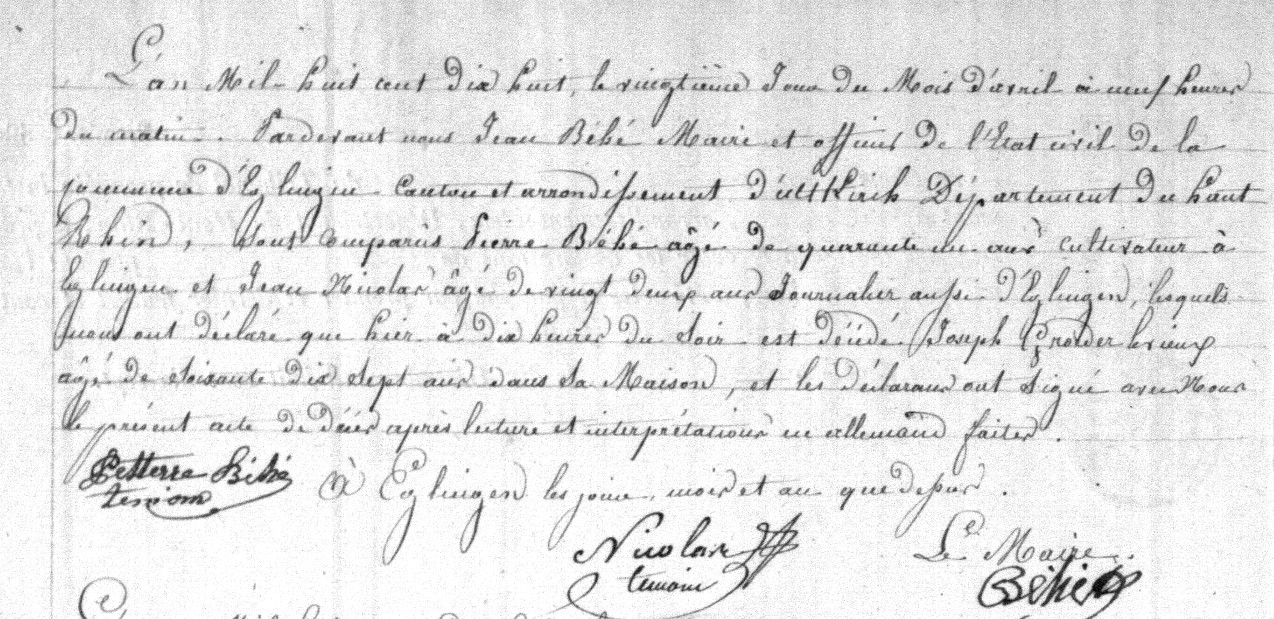 L'an Mil huit cent dix huit, le vingtième Jour du Mois d'avril à neuf heures
du matin. Pardevant nous Jean Béhé Maire et officier de l'Etat civil de la
commune d'Eglingen Canton et arrondissement d'altkirch Département du haut
Rhin, Sont Comparus Pierre Béhé âgé de quarante un ans cultivateur à
Eglingen et Jean Nicolas âgé de vingt deux ans Journalier aussi d'Eglingen, lesquels
nous ont déclaré que hier à dix heures du Soir est décédé Joseph vieux
âgé de Soixante dix Sept ans dans Sa Maison, et les déclarans ont Signé avec Nous
le présent acte de décès après lecture et interprétations en allemand faites.
Petterre Béhé
temoin
à Eglingen les jour, mois et an que dessus.
Nicolas
temoin
Le Maire.
Béhé